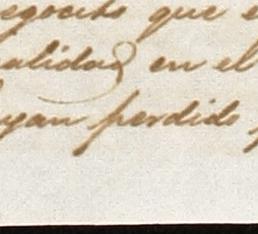 negocito que e
calidad en el
ayan perdido